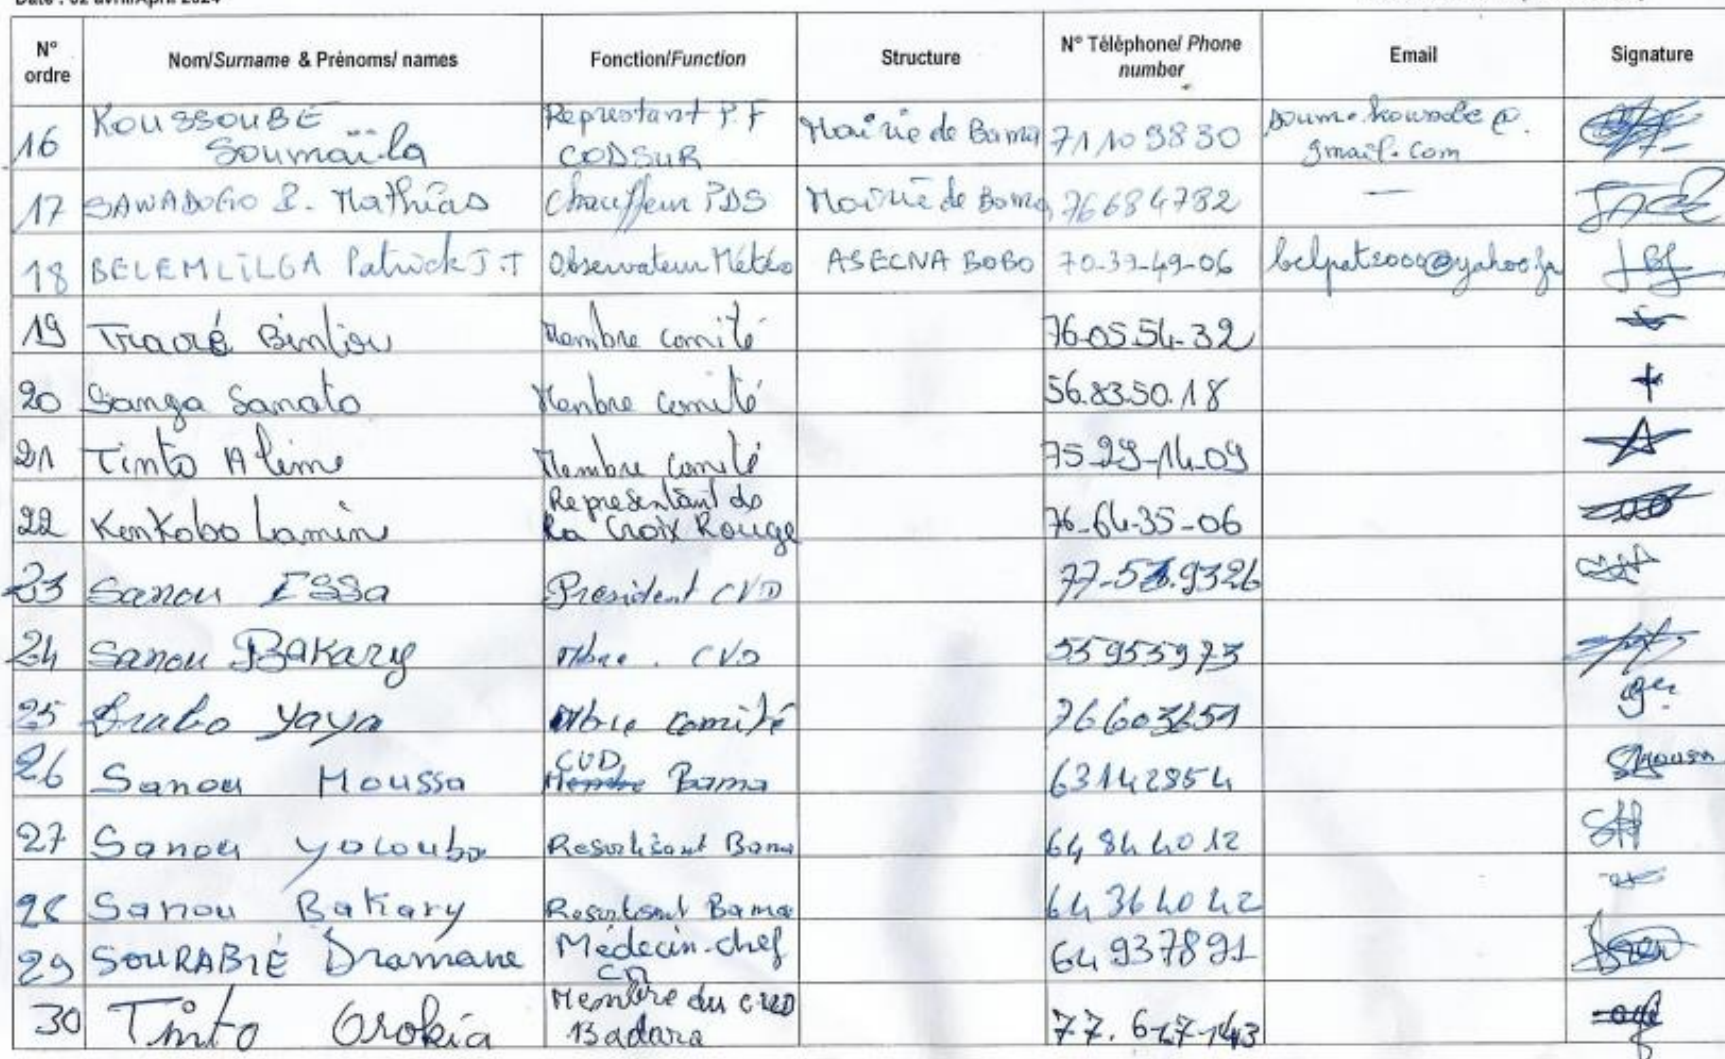 N° ordre Nom/Surname & Prénoms/ names Fonction/Function Structure N° Téléphone/ Phone number Email Signature
16 KOUSSOUBE Soumaïla Represtant P.F CODSUR Mairie de Bama 71109830 gmail.com
17 SAWADOGO B. Mathias Chauffeur PDS Mairie de Bama 76684782 —
18 BELEMLILGA Patrick J.T Observateur Météo ASECNA BOBO 70-39-49-06 belpat2000@yahoo.fr
19 Traoré Bintou Membre comité 76-05.54-32
20 Sanga Sanata Membre comité 56.83.50.18 +
21 Tinto Alima Membre comité 75-29-14-09
22 Lamine Representant de la Croix Rouge 76-64-35-06
23 Sanou ISSa President CVD
24 Sanou BaKary Mbre. CVD 55955973
25 Yaya Mbre comité
26 Sanou Moussa CVD Membre Bama 63142854
27 Sanou Yacouba Bama 64844012
28 Sanou Bakary Bama 64364042
29 SOURABIÉ Dramane Médecin-chef 64937891
30 Tinto Orokia Membre du CVD Badara